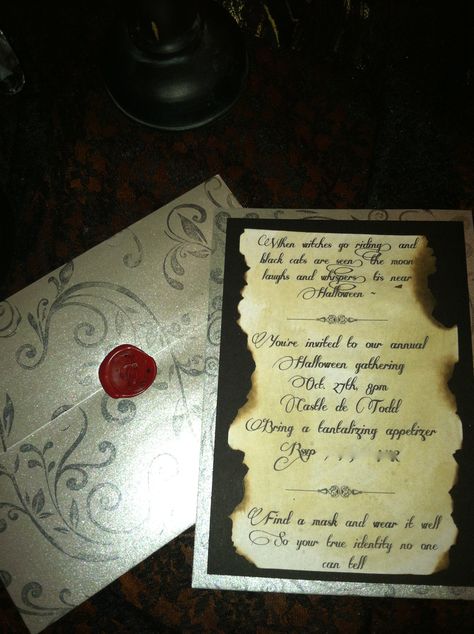 When witches go riding and
black cats are seen the moon
laughs and whispers tis near
Halloween ~
You're invited to our annual
Halloween gathering
Oct. 27th, 8pm
Castle de Todd
Bring a tantalizing appetizer
Rsvp
Find a mask and wear it well
So your true identity no one
can tell